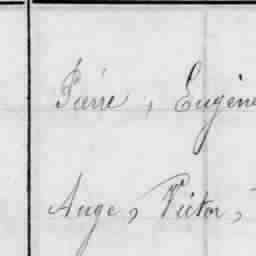 Pierre, Eugène
Ange, Victor,